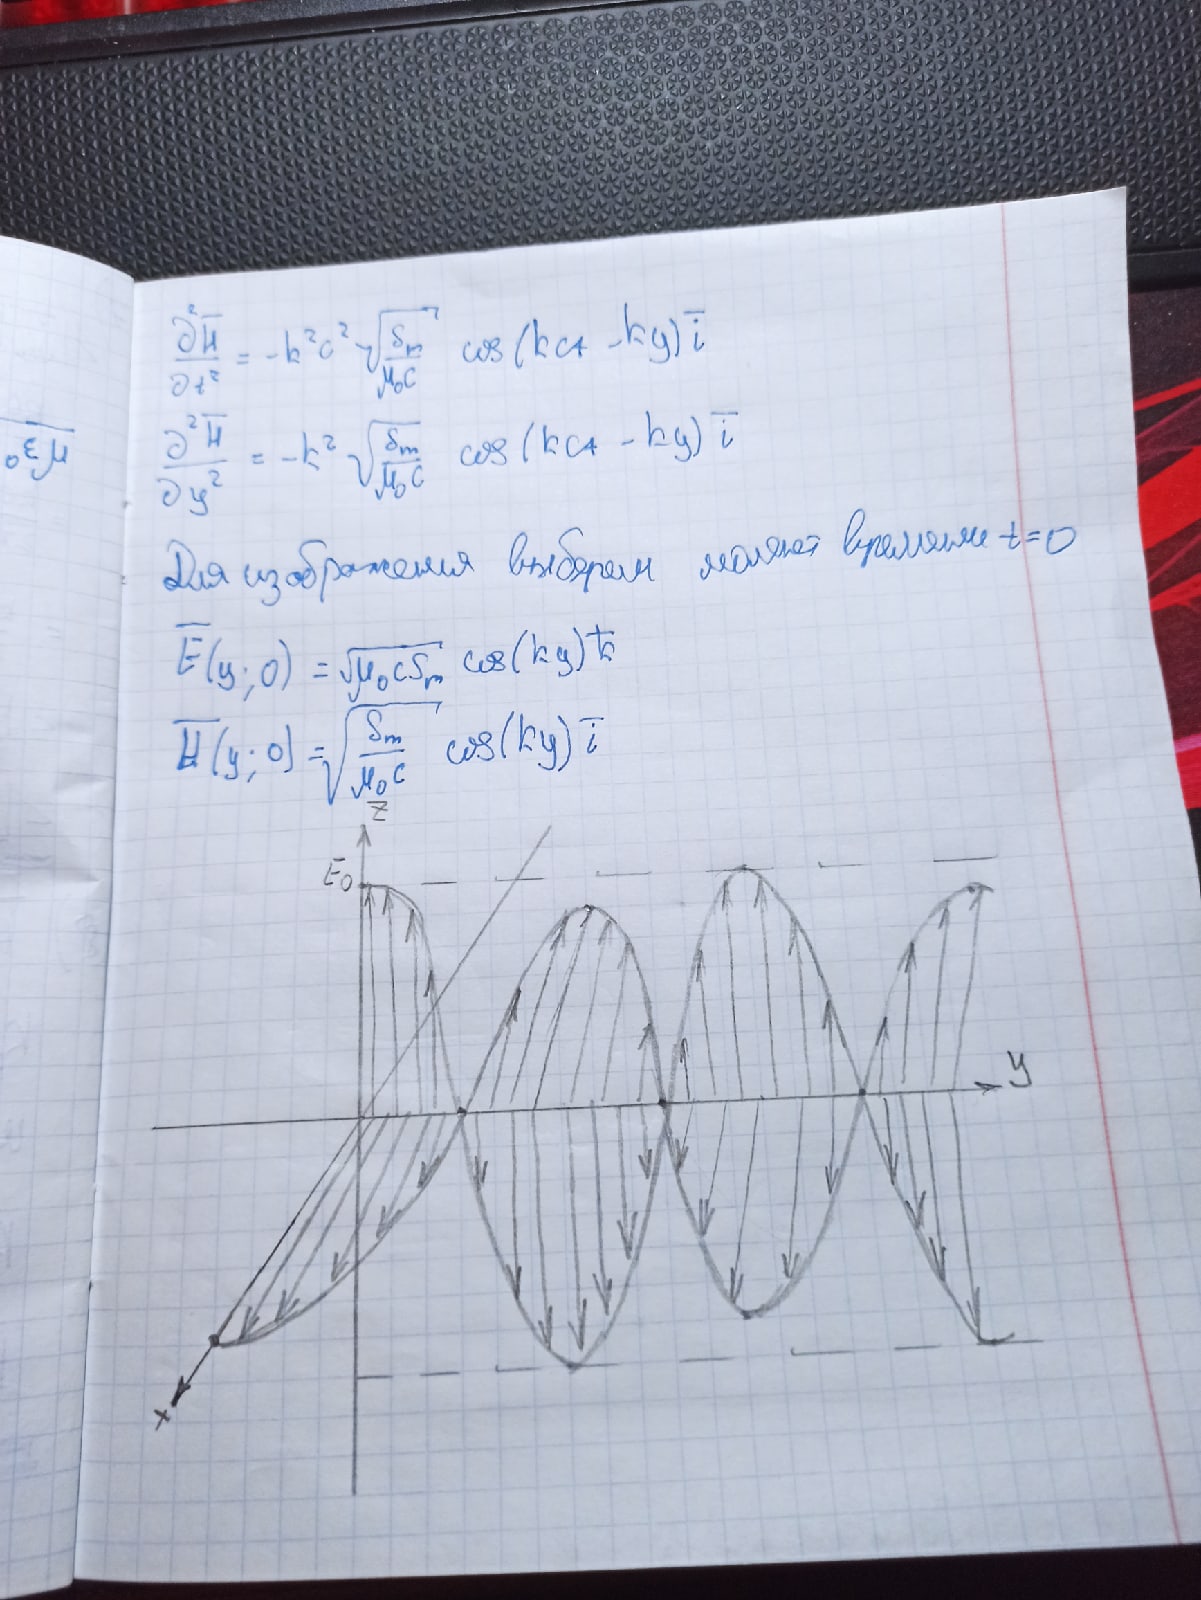 ∂²H̅/∂t² = -k²c² √(Sₘ/μ₀c) cos(kct - ky) i̅
∂²H̅/∂y² = -k² √(Sₘ/μ₀c) cos(kct - ky) i̅
Для изображения выберем момент времени t=0
E̅(y;0) = √(μ₀cSₘ) cos(ky) k̅
H̅(y;0) = √(Sₘ/μ₀c) cos(ky) i̅
z
E₀
y
x